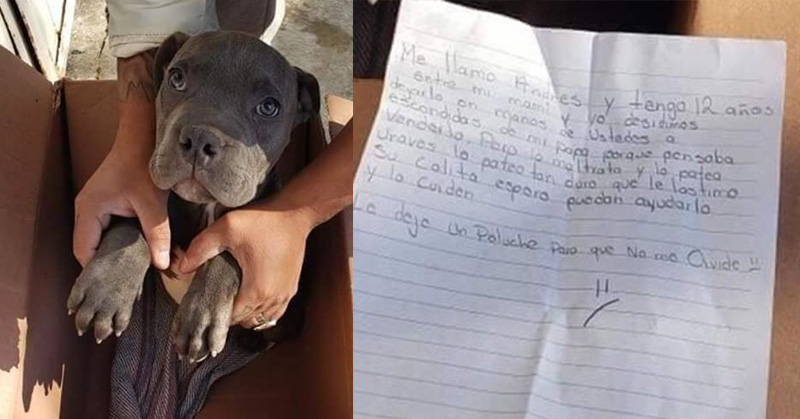 Me llamo Andres y tengo 12 años
entre mi mamá y yo decidimos
dejarlo en manos de Ustedes a
escondidas de mi papa porque pensaba
venderlo. Pero lo maltrata y lo patea
unaves lo pateo tan duro que le lastimo
su colita espero puedan ayudarlo
y lo cuiden
Le deje un Peluche Para que No me Olvide